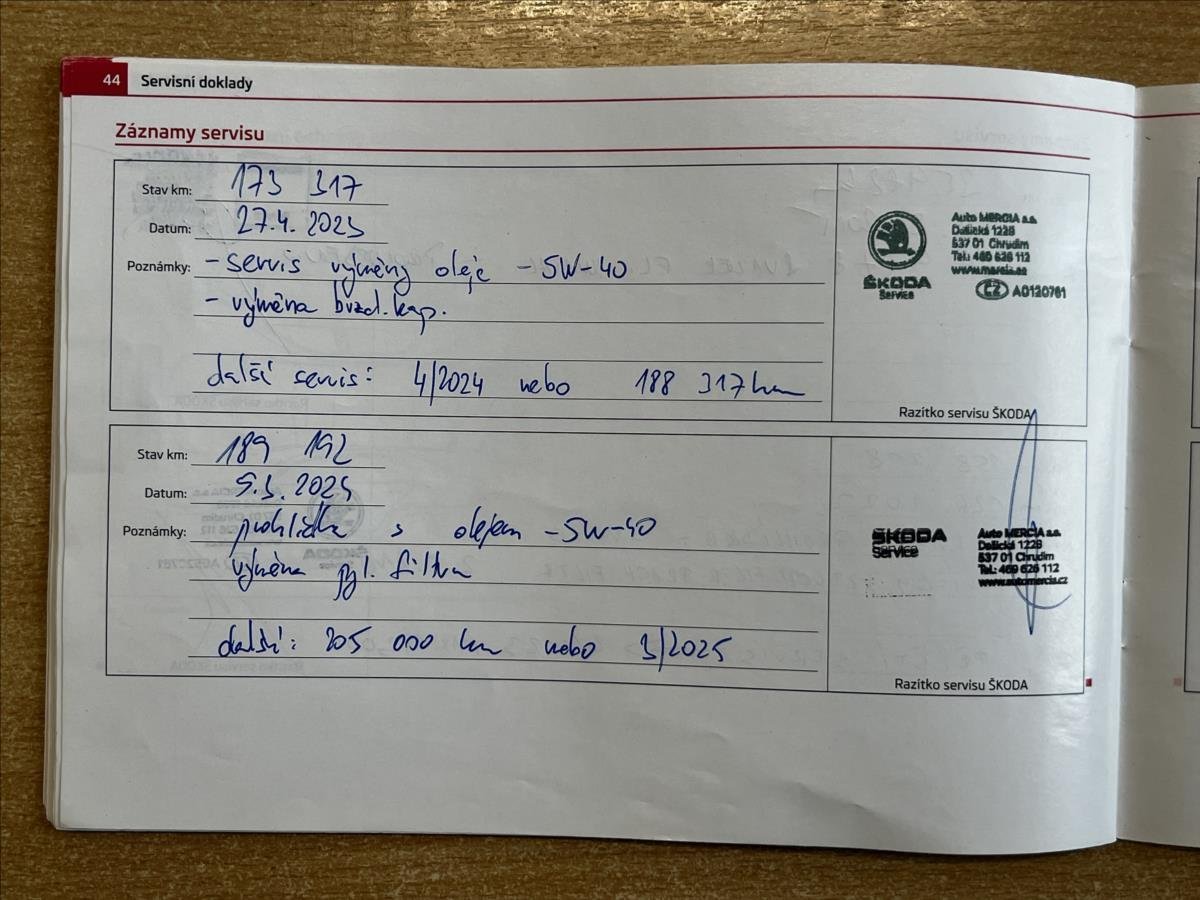 44 Servisní doklady
Záznamy servisu
Stav km: 173 317
Datum: 27.4. 2023
Poznámky: - servis výměny oleje - 5W-40
- výměna brzd. kap.
další servis: 4/2024 nebo 188 317 km
ŠKODA
Service
Auto MERCIA a.s.
Dašická 1228
537 01 Chrudim
Tel.: 469 626 112
www.mercia.cz
CZ A0120761
Razítko servisu ŠKODA
Stav km: 189 192
Datum: 5.3. 2024
Poznámky: prohlídka s olejem - 5W-40
výměna pyl. filtru
další: 205 000 km nebo 3/2025
ŠKODA
Service
Auto MERCIA a.s.
Dašická 1228
537 01 Chrudim
Tel.: 469 626 112
www.automercia.cz
Razítko servisu ŠKODA